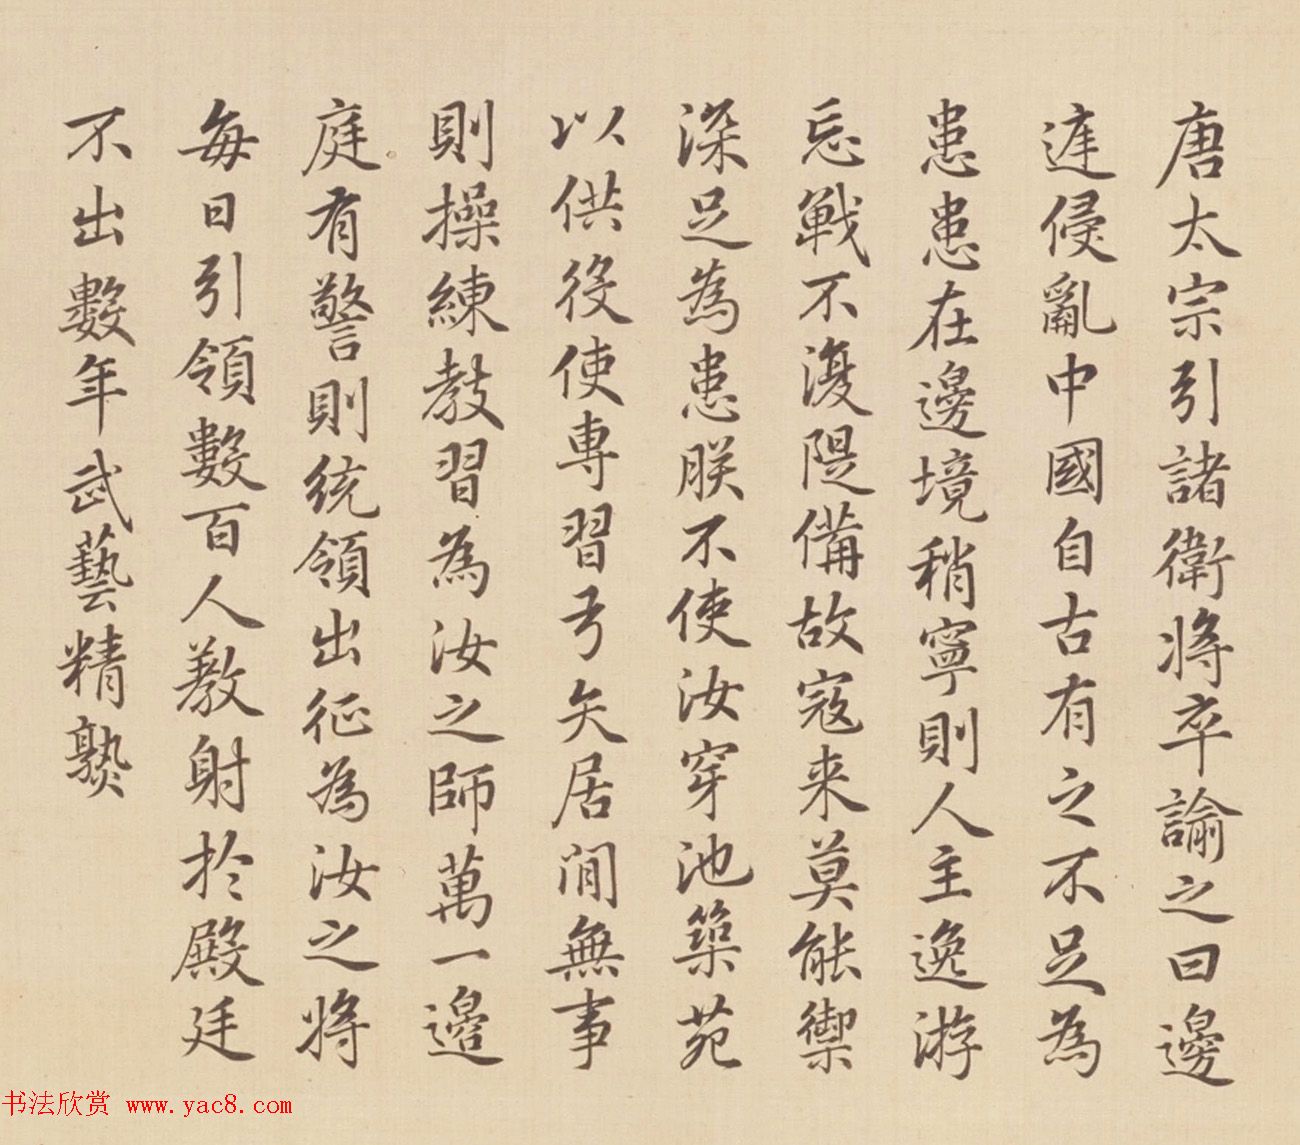 唐太宗引諸衛將卒諭之曰邊
侵亂中國自古有之不足為
患患在邊境稍寧則人主逸游
忘戰不復隄備故寇来莫能禦
深足為患朕不使汝穿池築苑
以供役使專習弓矢居閒無事
則操練教習為汝之師萬一邊
庭有警則統領出征為汝之將
每日引領數百人教射於殿廷
不出數年武藝精熟
书法欣赏 www.yac8.com